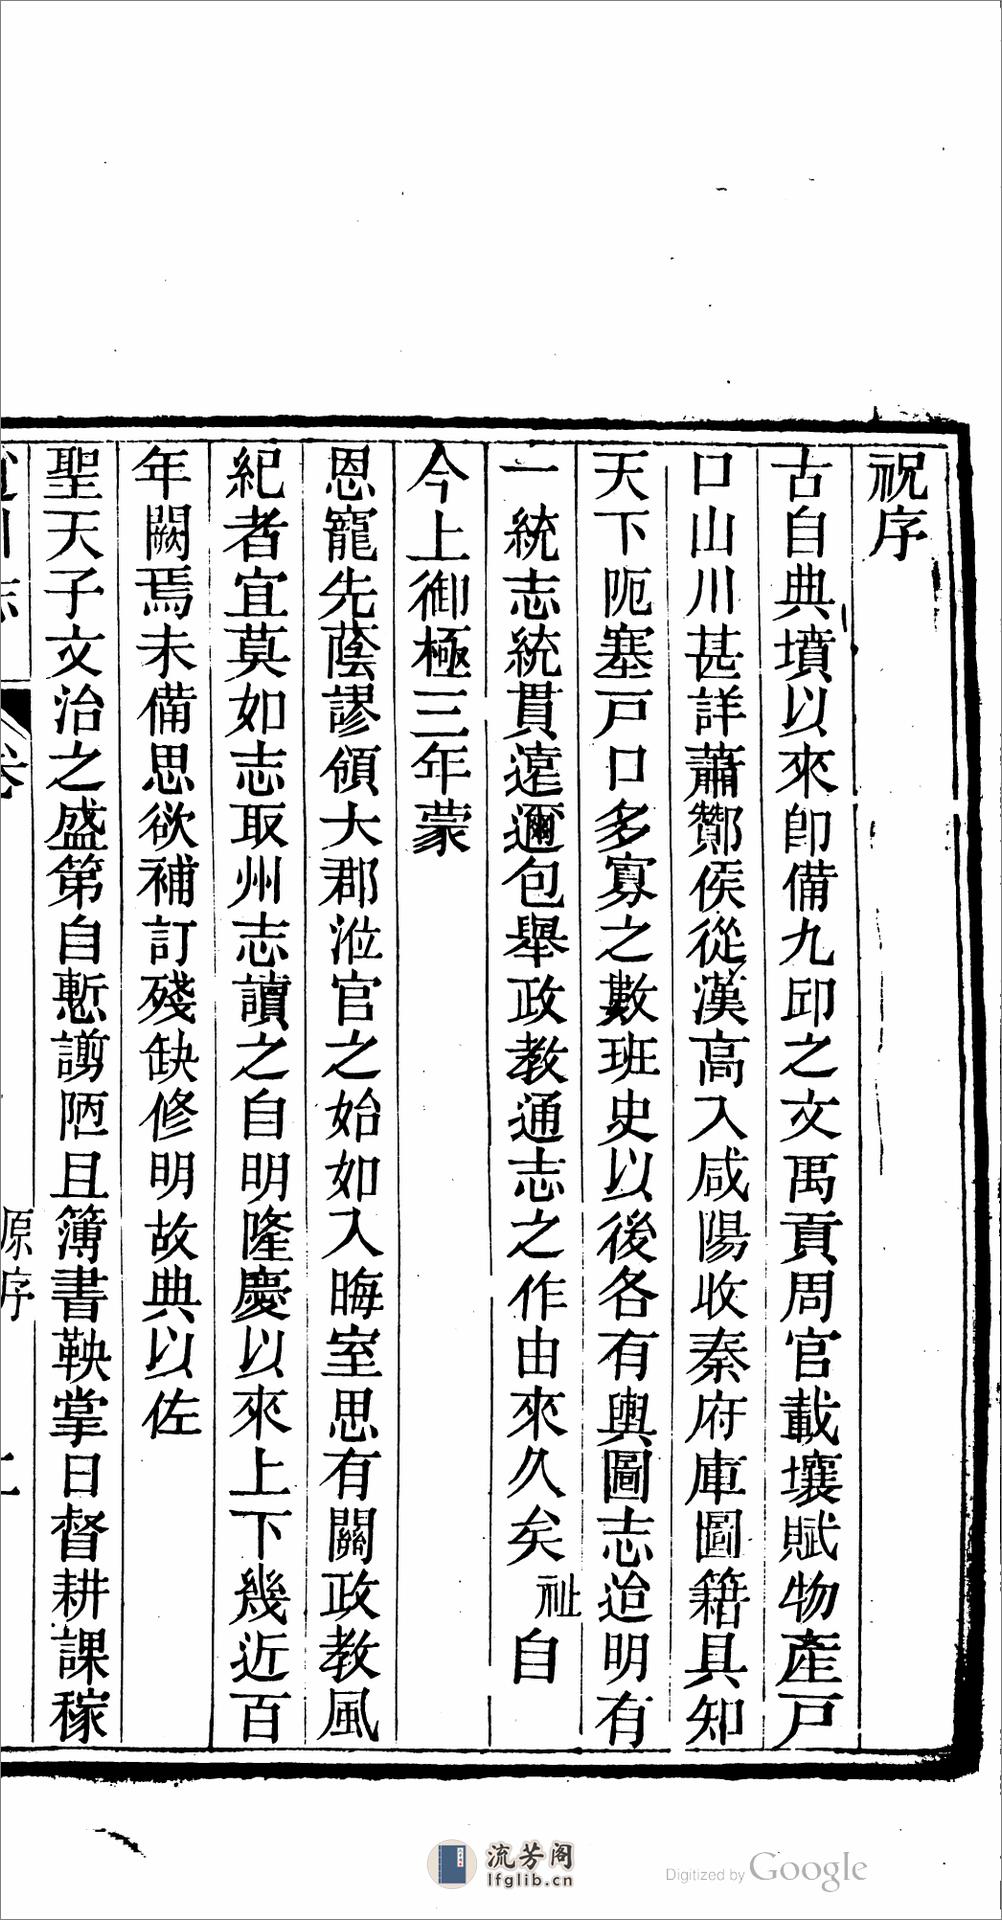 祝序
古自典墳以來卽備九邱之文禹貢周官載壤賦物產戸
口山川甚詳蕭酇侯從漢高入咸陽收秦府庫圖籍具知
天下阨塞戸口多寡之數班史以後各有輿圖志迨明有
一統志統貫遠邇包舉政教通志之作由來久矣祉自
今上御極三年蒙
恩寵先蔭謬領大郡涖官之始如入晦室思有關政教風
紀者宜莫如志取州志讀之自明隆慶以來上下幾近百
年闕焉未備思欲補訂殘缺修明故典以佐
聖天子文治之盛第自慙謭陋且簿書鞅掌日督耕課稼
志 卷 原序
流芳阁
lfglib.cn
Digitized by Google